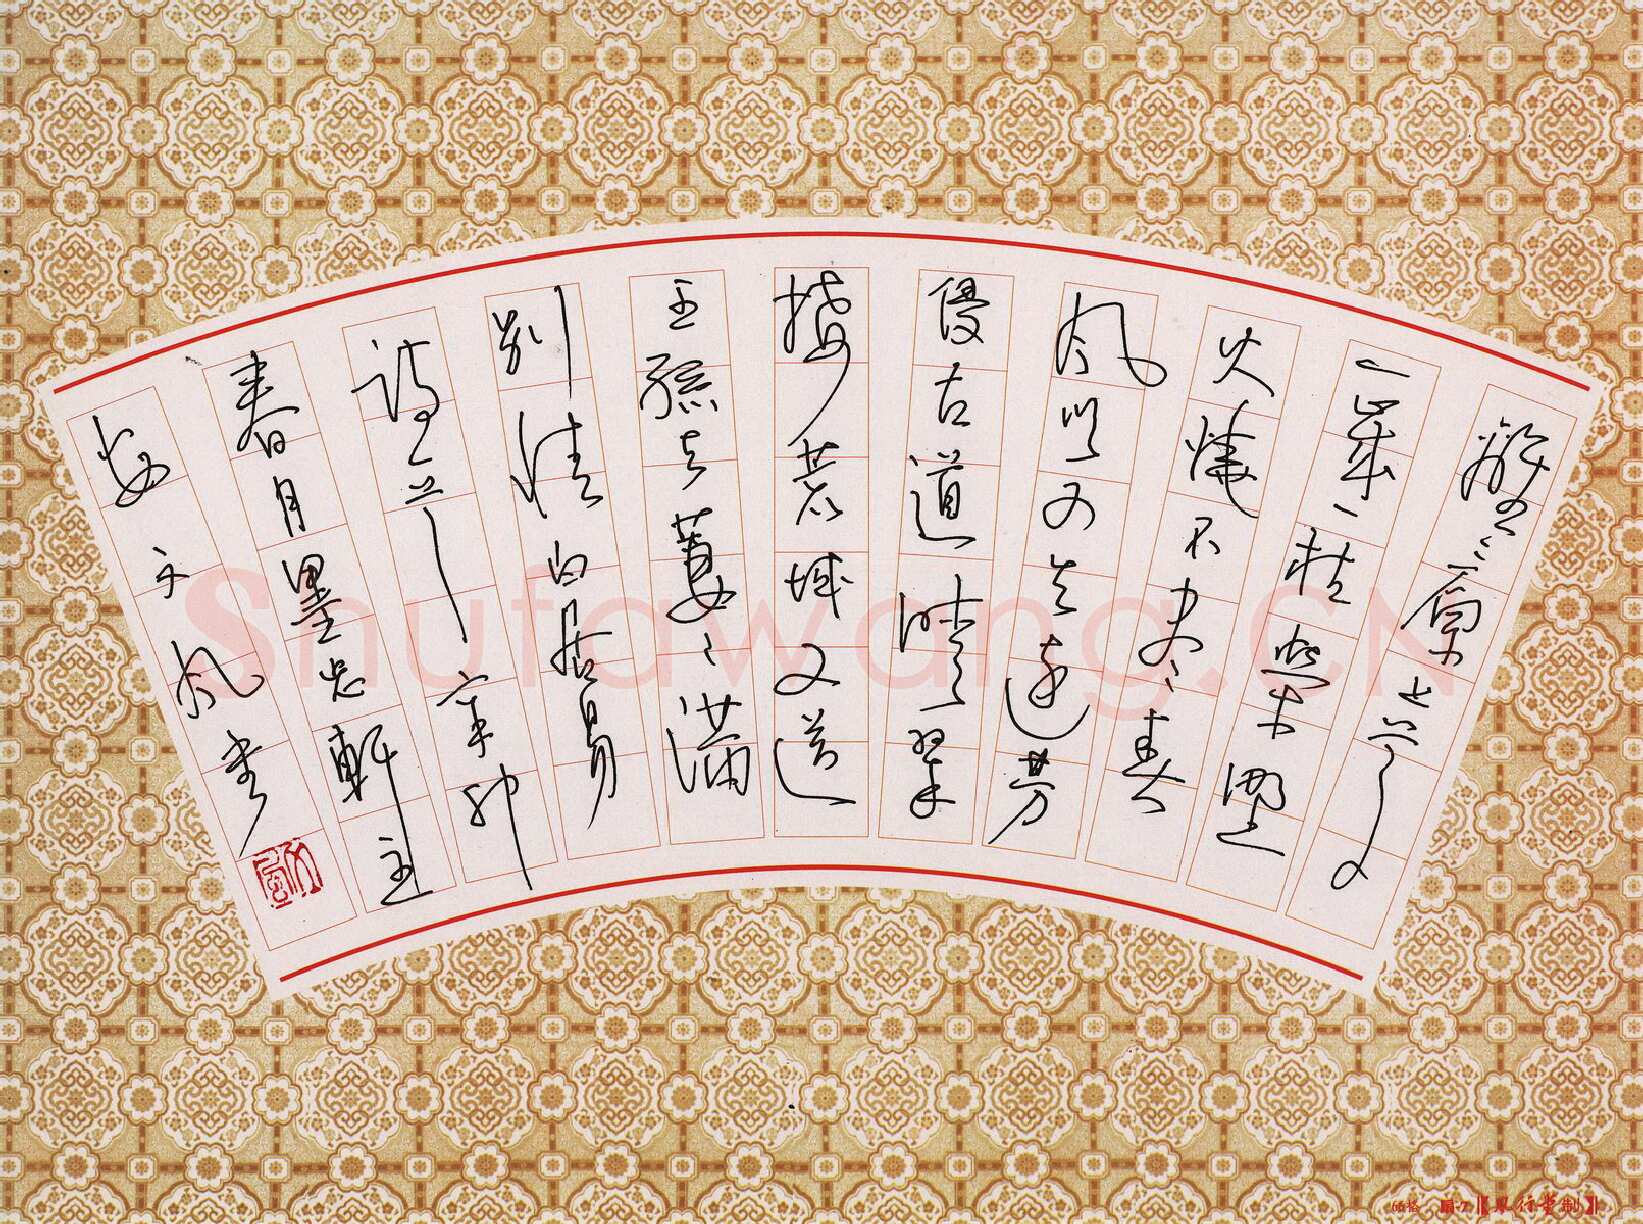 離離原上草
一歲一枯榮野
火燒不盡春
風吹又生遠芳
侵古道晴翠
接荒城又送
王孫去萋〻滿
別情白居易
詩一首辛卯
春月墨軒主
安文風書
Shufawang.CN
扇-7【風行堂制】